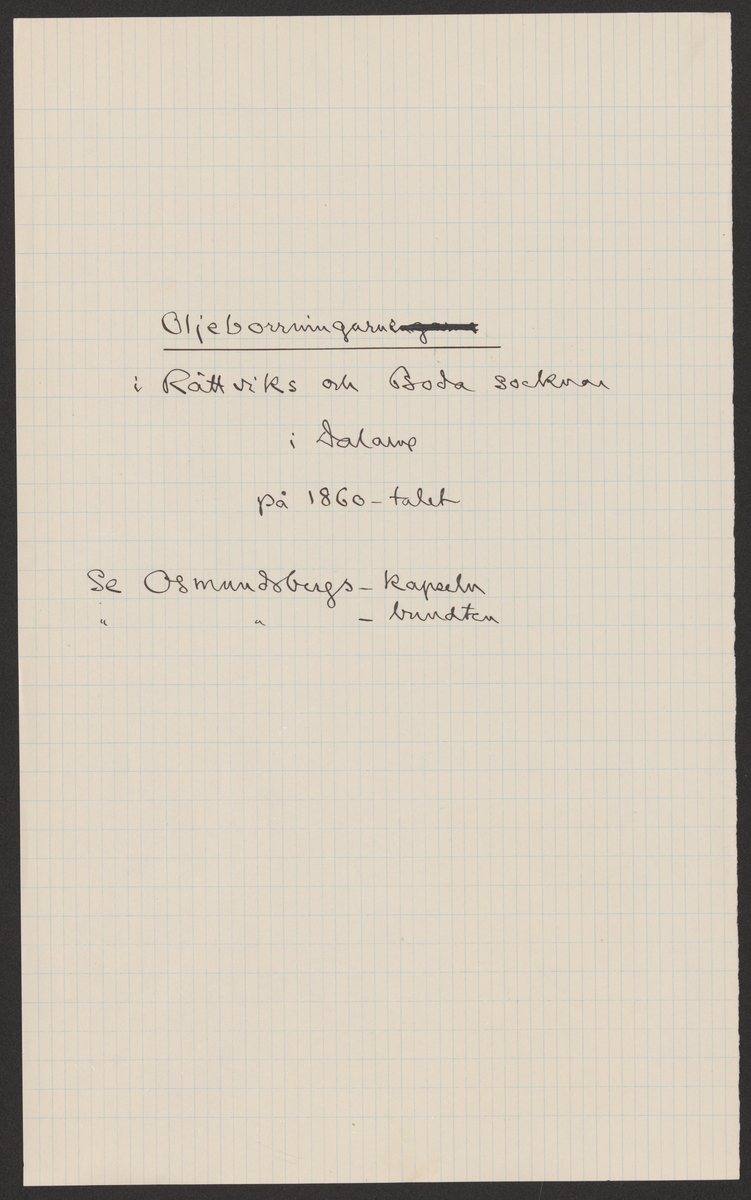 Oljeborrningarne
i Rättviks och Boda socknar
i Dalarne
på 1860-talet
Se Osmundsbergs-kapseln
" " - bundten